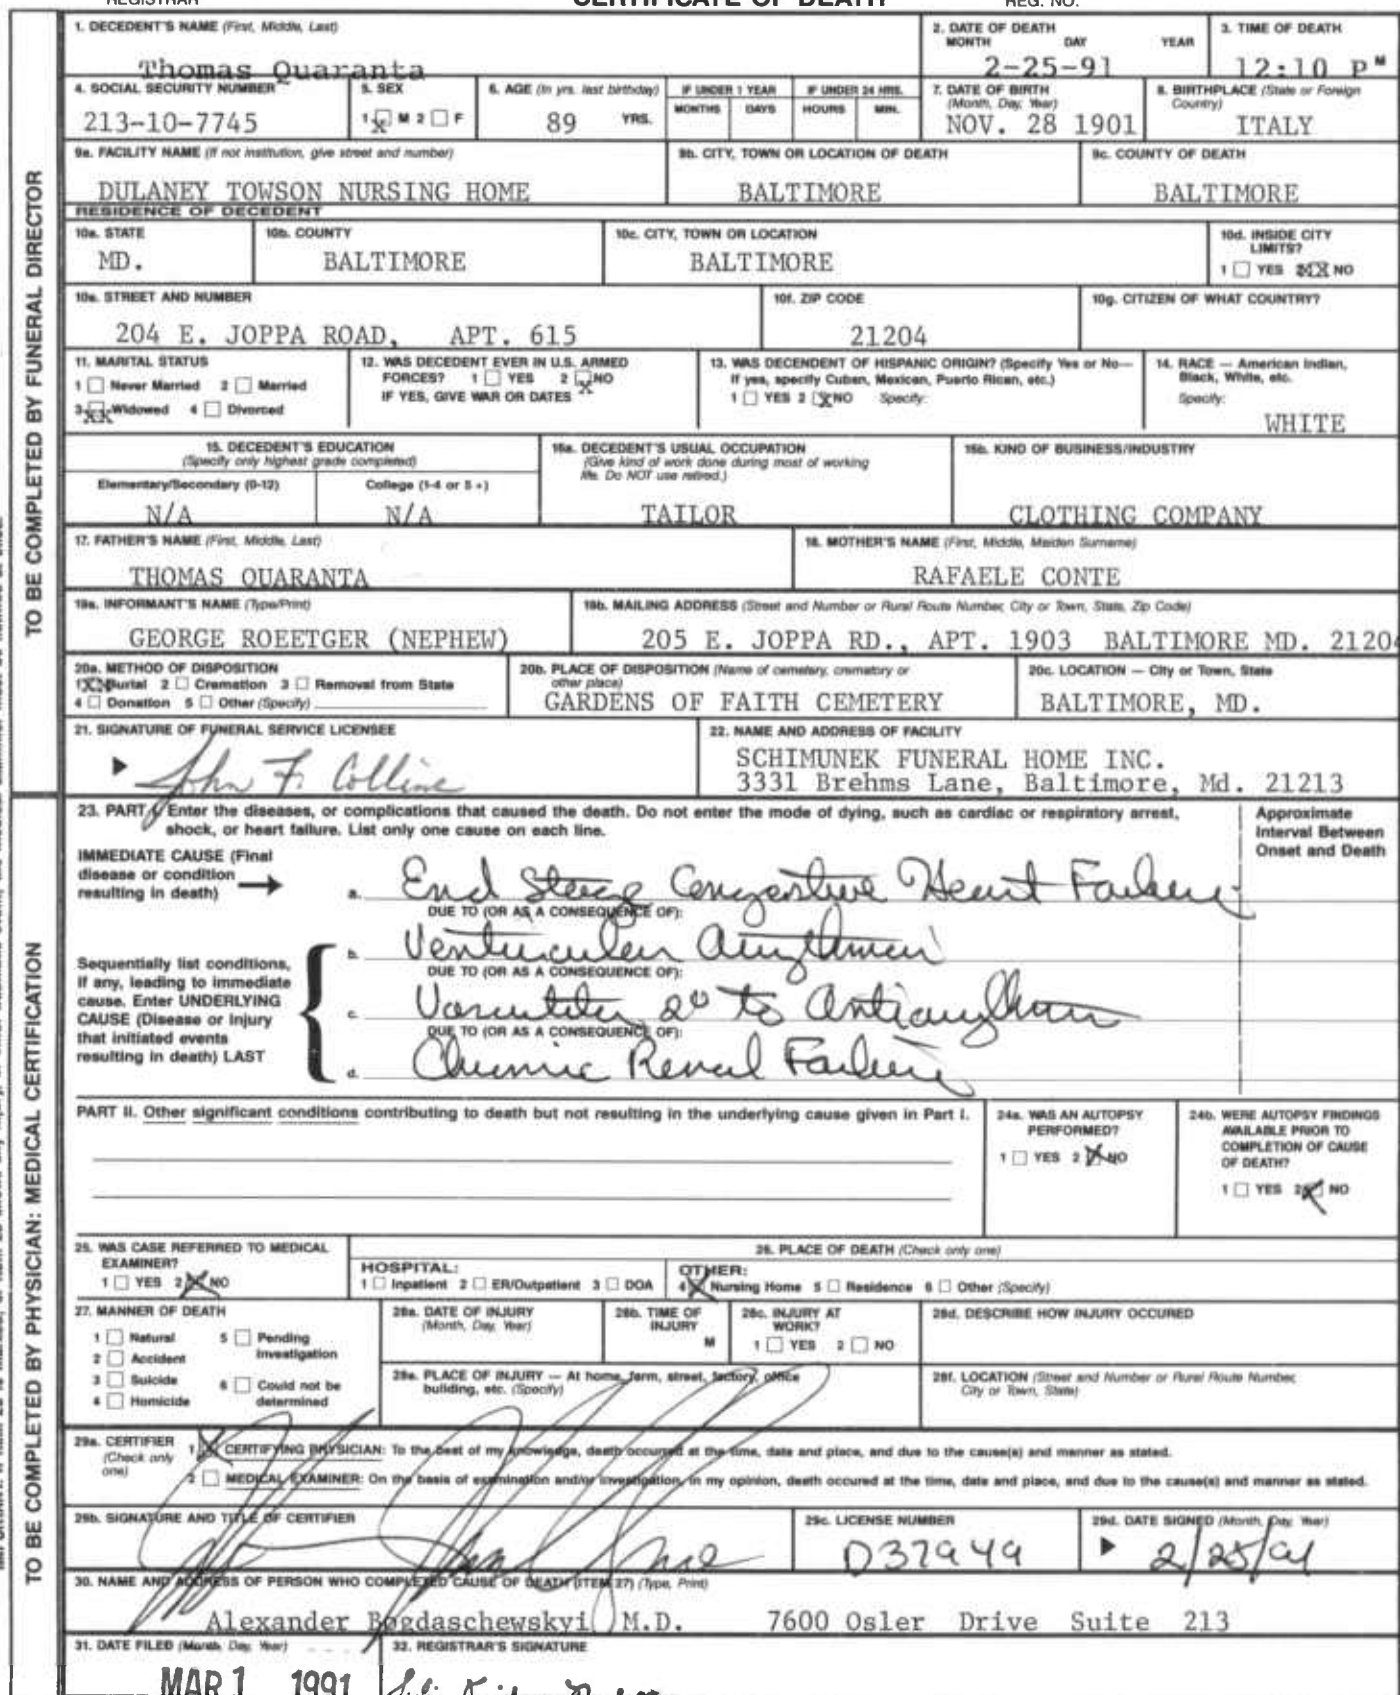 REGISTRAR CERTIFICATE OF DEATH REG. NO.
1. DECEDENT'S NAME (First, Middle, Last)
Thomas Quaranta
2. DATE OF DEATH
MONTH DAY YEAR
2-25-91
3. TIME OF DEATH
12:10 P M
4. SOCIAL SECURITY NUMBER
213-10-7745
5. SEX
1 X M 2 F
6. AGE (In yrs. last birthday)
89 YRS.
IF UNDER 1 YEAR
MONTHS DAYS
IF UNDER 24 HRS.
HOURS MIN.
7. DATE OF BIRTH
(Month, Day, Year)
NOV. 28 1901
8. BIRTHPLACE (State or Foreign
Country)
ITALY
9a. FACILITY NAME (If not institution, give street and number)
DULANEY TOWSON NURSING HOME
9b. CITY, TOWN OR LOCATION OF DEATH
BALTIMORE
9c. COUNTY OF DEATH
BALTIMORE
RESIDENCE OF DECEDENT
10a. STATE
MD.
10b. COUNTY
BALTIMORE
10c. CITY, TOWN OR LOCATION
BALTIMORE
10d. INSIDE CITY
LIMITS?
1 YES 2 XX NO
10e. STREET AND NUMBER
204 E. JOPPA ROAD, APT. 615
10f. ZIP CODE
21204
10g. CITIZEN OF WHAT COUNTRY?
11. MARITAL STATUS
1 Never Married 2 Married
3 XX Widowed 4 Divorced
12. WAS DECEDENT EVER IN U.S. ARMED
FORCES? 1 YES 2 X NO
IF YES, GIVE WAR OR DATES
13. WAS DECENDENT OF HISPANIC ORIGIN? (Specify Yes or No—
If yes, specify Cuban, Mexican, Puerto Rican, etc.)
1 YES 2 X NO Specify:
14. RACE — American Indian,
Black, White, etc.
Specify:
WHITE
15. DECEDENT'S EDUCATION
(Specify only highest grade completed)
Elementary/Secondary (0-12) College (1-4 or 5 +)
N/A N/A
16a. DECEDENT'S USUAL OCCUPATION
(Give kind of work done during most of working
life. Do NOT use retired.)
TAILOR
16b. KIND OF BUSINESS/INDUSTRY
CLOTHING COMPANY
17. FATHER'S NAME (First, Middle, Last)
THOMAS QUARANTA
18. MOTHER'S NAME (First, Middle, Maiden Surname)
RAFAELE CONTE
19a. INFORMANT'S NAME (Type/Print)
GEORGE ROEETGER (NEPHEW)
19b. MAILING ADDRESS (Street and Number or Rural Route Number, City or Town, State, Zip Code)
205 E. JOPPA RD., APT. 1903 BALTIMORE MD. 21204
20a. METHOD OF DISPOSITION
1 XX Burial 2 Cremation 3 Removal from State
4 Donation 5 Other (Specify)
20b. PLACE OF DISPOSITION (Name of cemetery, crematory or
other place)
GARDENS OF FAITH CEMETERY
20c. LOCATION — City or Town, State
BALTIMORE, MD.
21. SIGNATURE OF FUNERAL SERVICE LICENSEE
John F. Collins
22. NAME AND ADDRESS OF FACILITY
SCHIMUNEK FUNERAL HOME INC.
3331 Brehms Lane, Baltimore, Md. 21213
23. PART I. Enter the diseases, or complications that caused the death. Do not enter the mode of dying, such as cardiac or respiratory arrest,
shock, or heart failure. List only one cause on each line.
Approximate
Interval Between
Onset and Death
IMMEDIATE CAUSE (Final
disease or condition
resulting in death)
a. End Stage Congestive Heart Failure
DUE TO (OR AS A CONSEQUENCE OF):
b. Ventricular Arrythmia
DUE TO (OR AS A CONSEQUENCE OF):
Sequentially list conditions,
if any, leading to immediate
cause. Enter UNDERLYING
CAUSE (Disease or injury
that initiated events
resulting in death) LAST
c. Vasculitis 2° to
DUE TO (OR AS A CONSEQUENCE OF):
d. Chronic Renal Failure
PART II. Other significant conditions contributing to death but not resulting in the underlying cause given in Part I.
24a. WAS AN AUTOPSY
PERFORMED?
1 YES 2 X NO
24b. WERE AUTOPSY FINDINGS
AVAILABLE PRIOR TO
COMPLETION OF CAUSE
OF DEATH?
1 YES 2 X NO
25. WAS CASE REFERRED TO MEDICAL
EXAMINER?
1 YES 2 X NO
26. PLACE OF DEATH (Check only one)
HOSPITAL:
1 Inpatient 2 ER/Outpatient 3 DOA
OTHER:
4 X Nursing Home 5 Residence 6 Other (Specify)
27. MANNER OF DEATH
1 Natural 5 Pending
Investigation
2 Accident
3 Suicide 6 Could not be
determined
4 Homicide
28a. DATE OF INJURY
(Month, Day, Year)
28b. TIME OF
INJURY
M
28c. INJURY AT
WORK?
1 YES 2 NO
28d. DESCRIBE HOW INJURY OCCURED
28e. PLACE OF INJURY — At home, farm, street, factory, office
building, etc. (Specify)
28f. LOCATION (Street and Number or Rural Route Number,
City or Town, State)
29a. CERTIFIER
(Check only
one)
1 X CERTIFYING PHYSICIAN: To the best of my knowledge, death occurred at the time, date and place, and due to the cause(s) and manner as stated.
2 MEDICAL EXAMINER: On the basis of examination and/or investigation, in my opinion, death occured at the time, date and place, and due to the cause(s) and manner as stated.
29b. SIGNATURE AND TITLE OF CERTIFIER
29c. LICENSE NUMBER
D37949
29d. DATE SIGNED (Month, Day, Year)
2/25/91
30. NAME AND ADDRESS OF PERSON WHO COMPLETED CAUSE OF DEATH (ITEM 27) (Type, Print)
Alexander Bogdaschewskyi M.D. 7600 Osler Drive Suite 213
31. DATE FILED (Month, Day, Year)
MAR 1 1991
32. REGISTRAR'S SIGNATURE
TO BE COMPLETED BY FUNERAL DIRECTOR
TO BE COMPLETED BY PHYSICIAN: MEDICAL CERTIFICATION